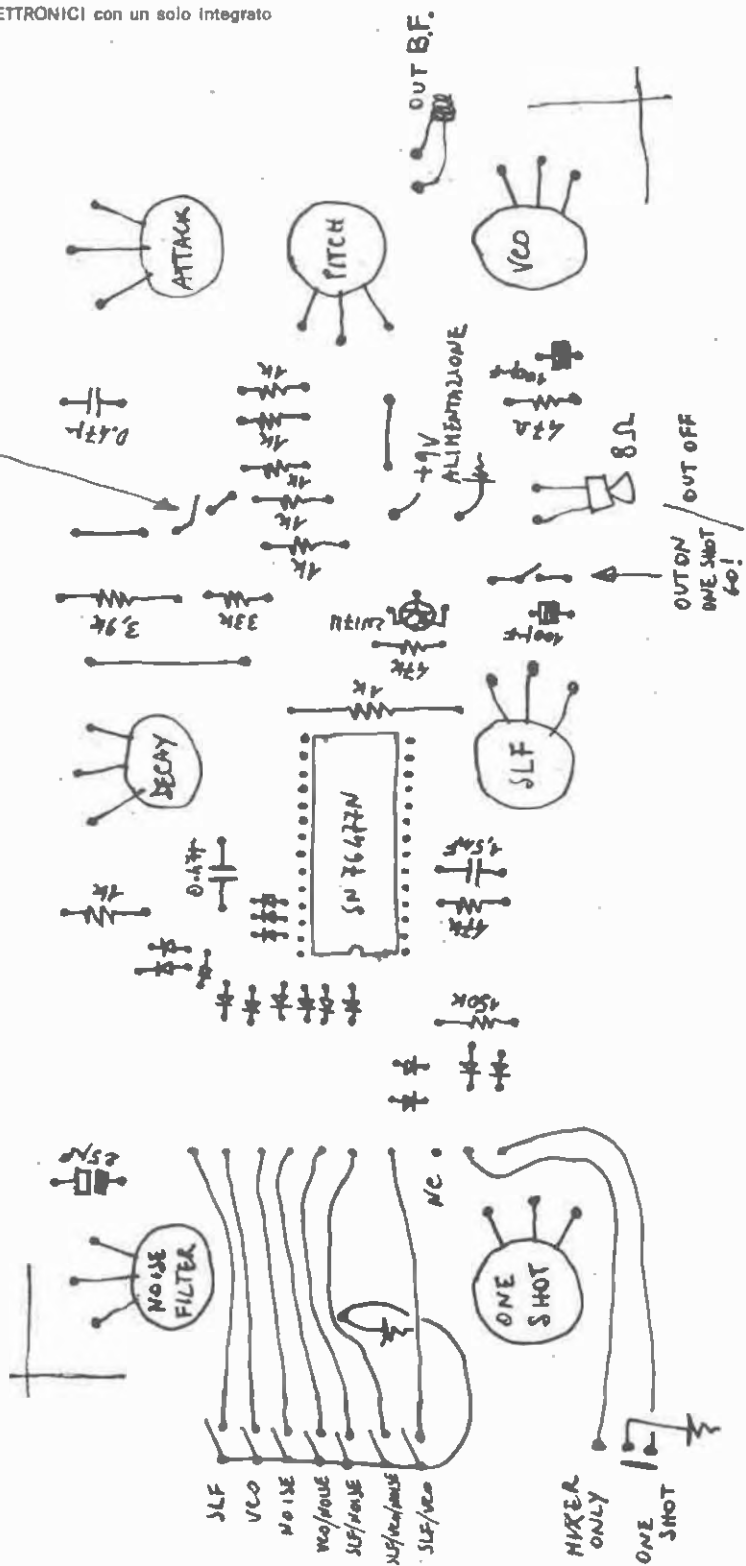 ETTRONICI con un solo integrato
OUT B.F.
ATTACK
PITCH
VCO
0.47µ
1k
1k
1k
1k
1k
+9V
ALIMENTAZIONE
100µF
47Ω
8Ω
OUT ON
ONE SHOT
GO!
OUT OFF
3,9k
33k
2N1711
47k
100µF
1k
DECAY
SLF
SN 76477N
1k
0.47µ
47k
150k
NOISE
FILTER
ONE
SHOT
NC
SLF
VCO
NOISE
VCO/NOISE
SLF/NOISE
SLF/VCO/NOISE
SLF/VCO
MIXER
ONLY
ONE
SHOT